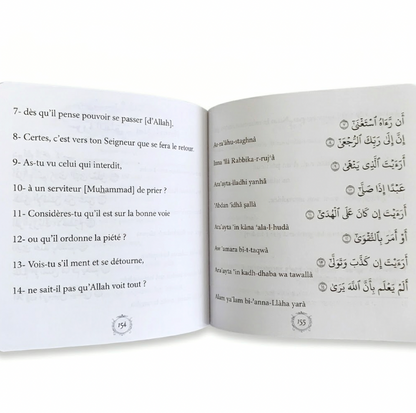 7- dès qu'il pense pouvoir se passer [d'Allah].
8- Certes, c'est vers ton Seigneur que se fera le retour.
9- As-tu vu celui qui interdit,
10- à un serviteur [Muḥammad] de prier ?
11- Considères-tu qu'il est sur la bonne voie
12- ou qu'il ordonne la piété ?
13- Vois-tu s'il ment et se détourne,
14- ne sait-il pas qu'Allah voit tout ?
154
أَن رَّءَاهُ ٱسْتَغْنَىٰٓ ٧
ra'āhu-staghnā
إِنَّ إِلَىٰ رَبِّكَ ٱلرُّجْعَىٰٓ ٨
'ilā Rabbika-r-ruj'ā
أَرَءَيْتَ ٱلَّذِى يَنْهَىٰ ٩
Ara'ayta-lladhī yanhā
عَبْدًا إِذَا صَلَّىٰٓ ١٠
'Abdan 'idhā ṣallā
أَرَءَيْتَ إِن كَانَ عَلَى ٱلْهُدَىٰٓ ١١
Ara'ayta 'in kāna 'ala-l-hudā
أَوْ أَمَرَ بِٱلتَّقْوَىٰٓ ١٢
Aw 'amara bi-t-taqwā
أَرَءَيْتَ إِن كَذَّبَ وَتَوَلَّىٰٓ ١٣
Ara'ayta 'in kadh-dhaba wa tawallā
أَلَمْ يَعْلَم بِأَنَّ ٱللَّهَ يَرَىٰ ١٤
Alam ya'lam bi-'anna-Llāha yarā
155